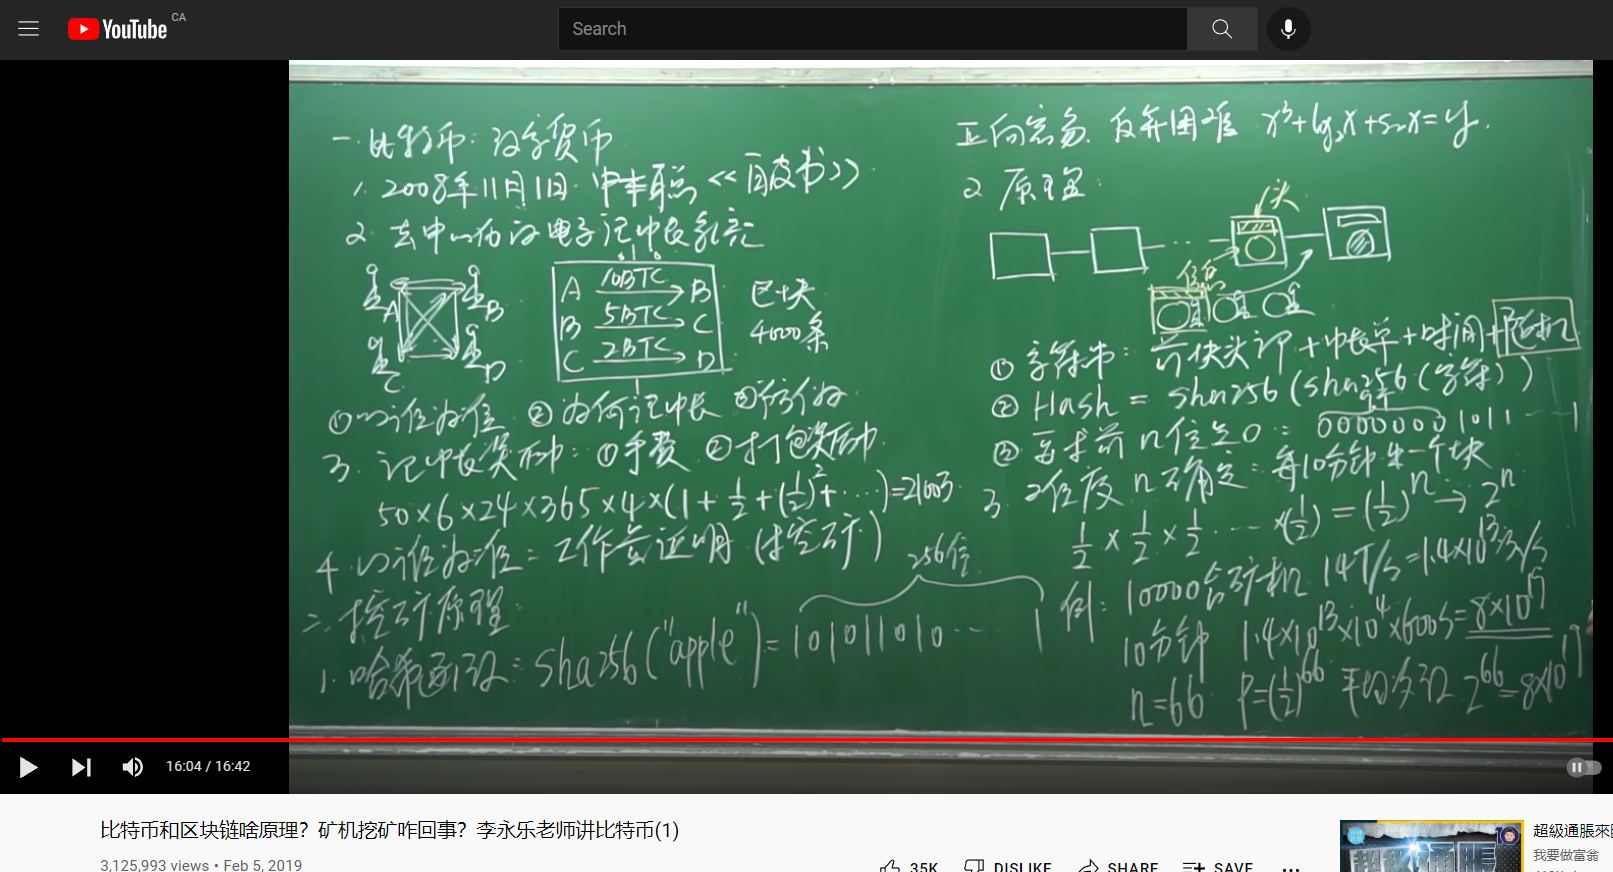 YouTube CA
Search
一. 比特币: 数字货币
1. 2008年11月1日 中本聪 <<白皮书>>
2. 去中心化的电子记帐系统
A 10BTC B
B 5BTC C
C 2BTC D
区块
4000条
A
B
C
D
① 以谁为准 ② 为何记帐 ③防伪
3. 记帐奖励: ①手费 ②打包奖励
50×6×24×365×4×(1+½+(½)²+…)=2100万
4. 以谁为准: 工作量证明 (挖矿)
二. 挖矿原理:
1. 哈希函数: sha256("apple")=101011010… 1
256位
正向容易 反算困难 x³+lg₂x+5√x=y.
2 原理:
头
① 字符串: 前块头部+帐单+时间+随机
② Hash = sha256(sha256(字符))
③ 要求前n位是0: 00000001011…1
3. 难度n确定: 每10分钟出一个块
½×½×½…×(½)=(½)ⁿ→2ⁿ
例: 10000台矿机 14T/s=1.4×10¹³次/s
10分钟 1.4×10¹³×10⁴×600s=8×10¹⁹
n=66 P=(½)⁶⁶ 平均次数 2⁶⁶=8×10¹⁹
16:04 / 16:42
比特币和区块链啥原理？矿机挖矿咋回事？李永乐老师讲比特币(1)
3,125,993 views • Feb 5, 2019
35K DISLIKE SHARE SAVE ...
超級通脹來
我要做富翁